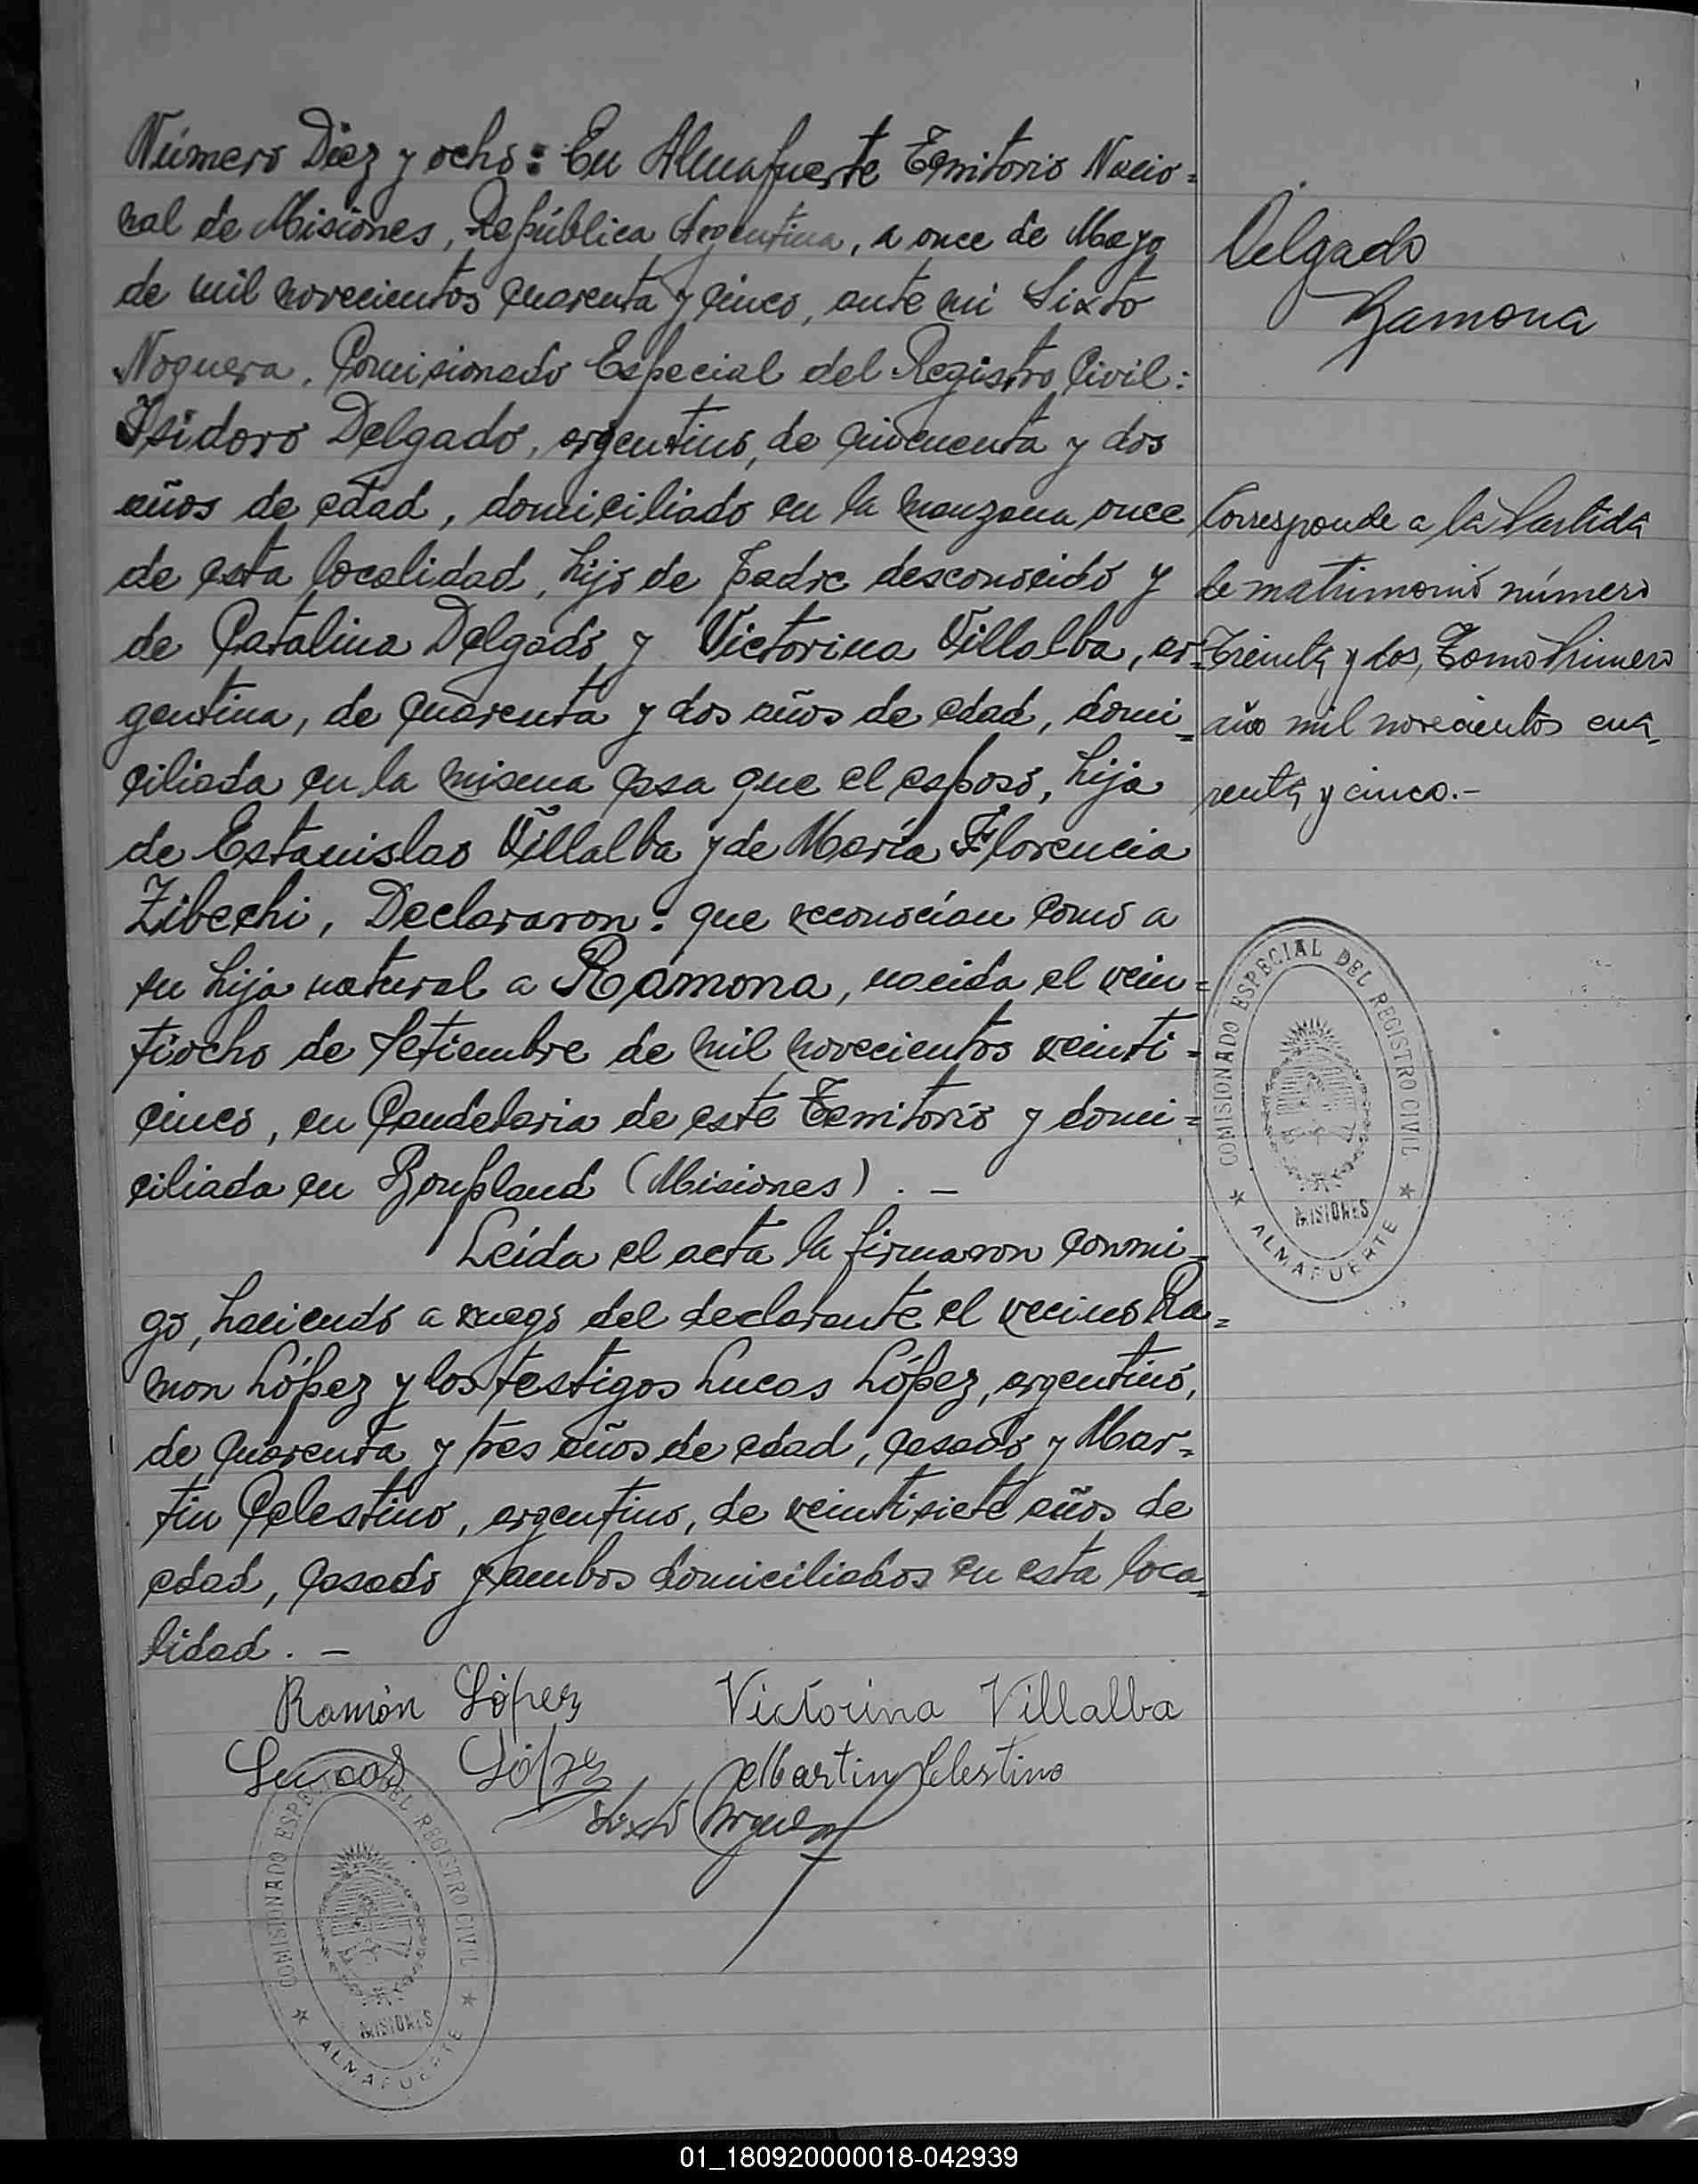 Número Diez y ocho: En Almafuerte Territorio Nacio=
nal de Misiones, República Argentina, a once de Mayo
de mil novecientos cuarenta y cinco, ante mi Sixto
Noguera, Comisionado Especial del Registro Civil:
Isidoro Delgado, argentino, de cincuenta y dos
años de edad, domiciliado en la manzana once
de esta localidad, hijo de padre desconocido y
de Catalina Delgado y Victorina Villalba, ar=
gentina, de cuarenta y dos años de edad, domi=
ciliada en la misma casa que el esposo, hija
de Estanislao Villalba y de María Florencia
Zibechi, Declararon: que reconocían como a
su hija natural a Ramona, nacida el vein=
tiocho de Setiembre de mil novecientos veinti=
cinco, en Candelaria de este Territorio y domi=
ciliada en Bonpland (Misiones). —
Leída el acta la firmaron conmi=
go, haciendo a ruego del declarante el vecino Ra=
mon López y los testigos Lucas López, argentino,
de cuarenta y tres años de edad, casado y Mar=
tin Celestino, argentino, de veintisiete años de
edad, casado y ambos domiciliados en esta loca=
lidad. —
Ramón López Victorina Villalba
Lucas López Martin Celestino
Sixto Noguera
COMISIONADO ESPECIAL DEL REGISTRO CIVIL
MISIONES
★ ALMAFUERTE ★
Delgado
Ramona
Corresponde a la Partida
de matrimonio número
Treinta y dos, Tomo Primero
año mil novecientos cua=
renta y cinco.-
COMISIONADO ESPECIAL DEL REGISTRO CIVIL
MISIONES
★ ALMAFUERTE ★
01_180920000018-042939